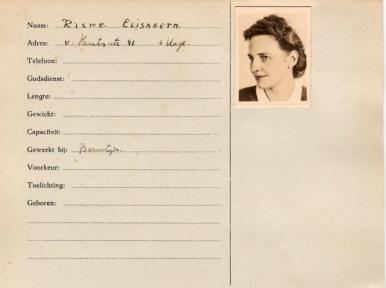 Naam: RISKE ELISABETH.
Adres: v. 41 's Hage.
Telefoon:
Godsdienst:
Lengte:
Gewicht:
Capaciteit:
Gewerkt bij:
Voorkeur:
Toelichting:
Geboren: